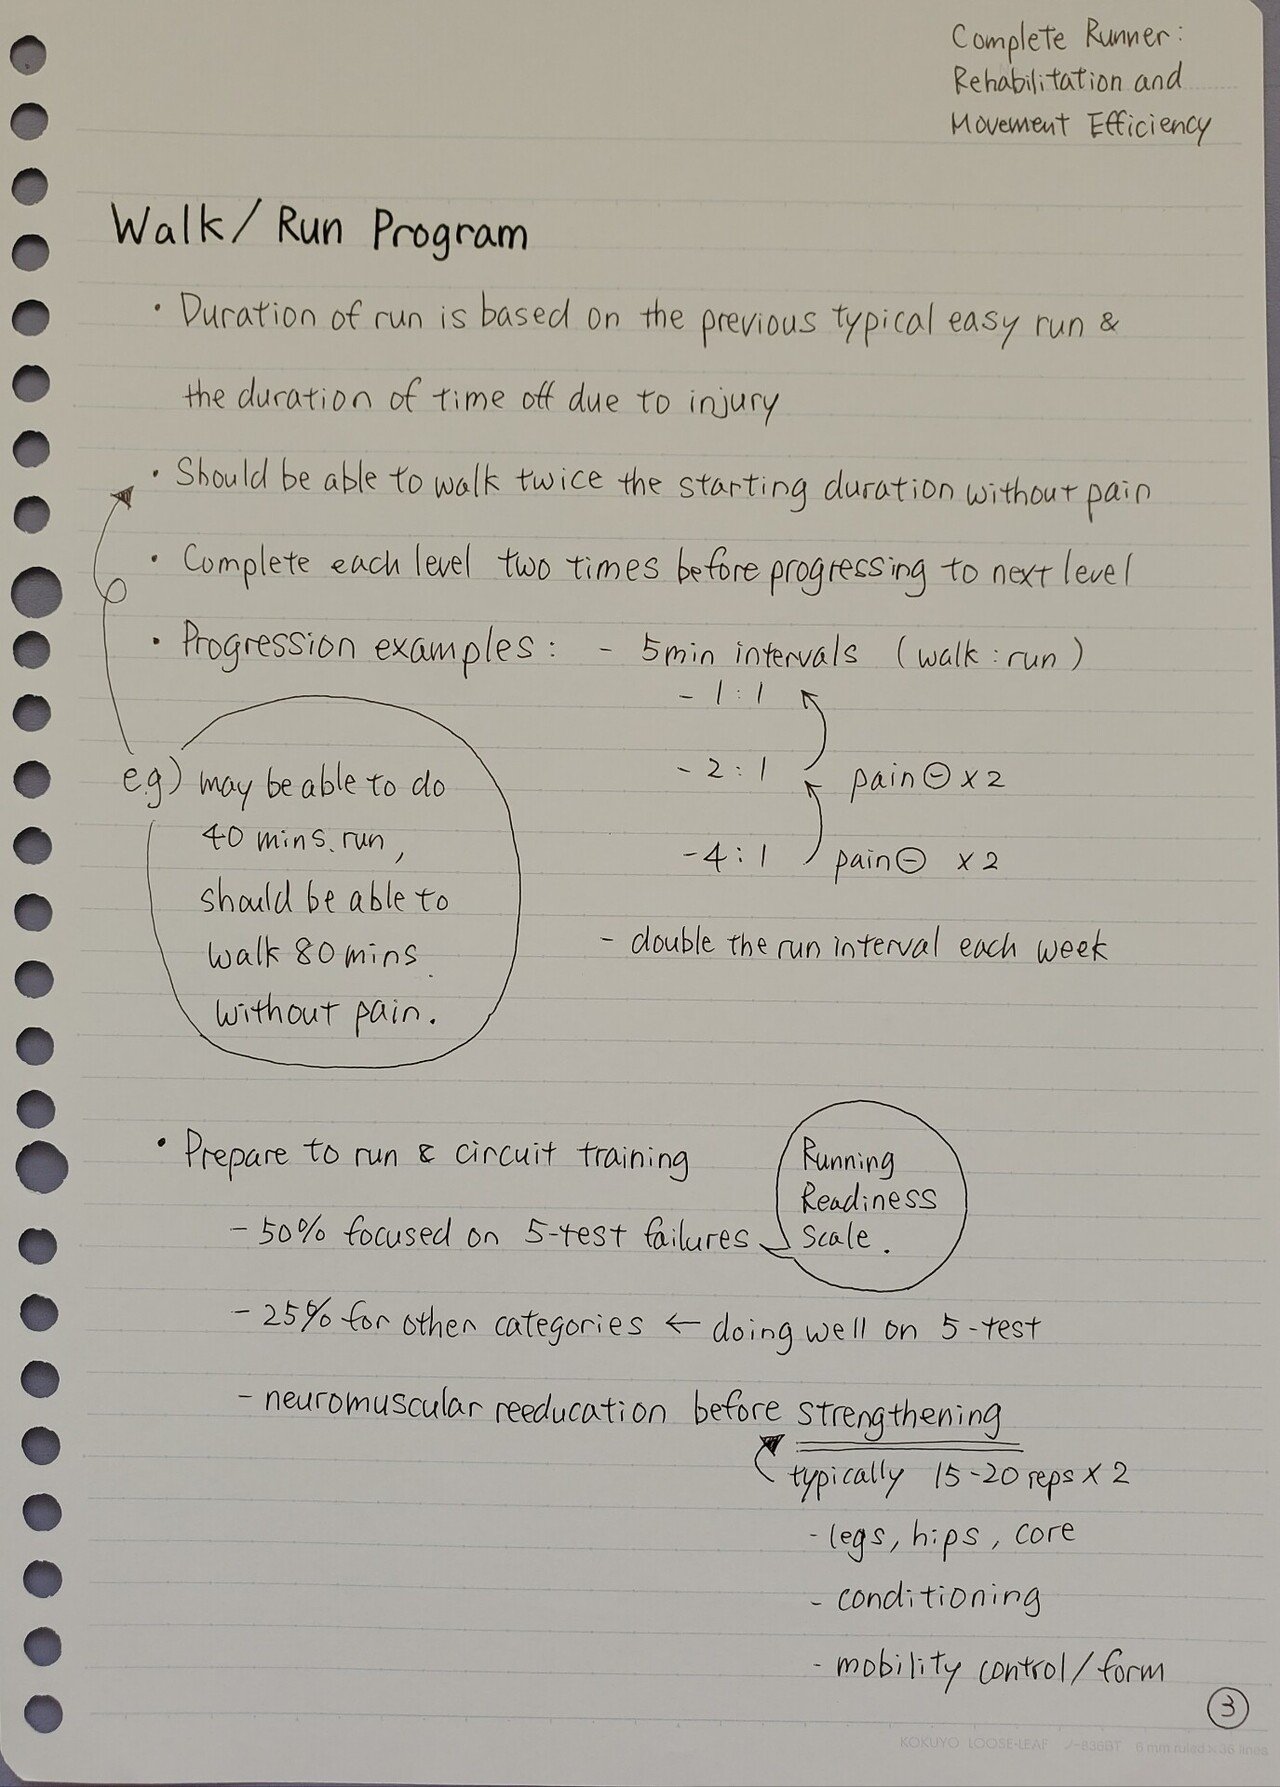 Complete Runner:
Rehabilitation and
Movement Efficiency
Walk/Run Program
• Duration of run is based on the previous typical easy run &
the duration of time off due to injury
• Should be able to walk twice the starting duration without pain
• Complete each level two times before progressing to next level
• Progression examples: - 5min intervals (walk:run)
- 1:1
- 2:1 pain⊖ x2
- 4:1 pain⊖ x2
- double the run interval each week
e.g) may be able to do
40 mins. run,
should be able to
walk 80 mins.
without pain.
• Prepare to run & circuit training
- 50% focused on 5-test failures
Running
Readiness
Scale.
- 25% for other categories ← doing well on 5-test
- neuromuscular reeducation before strengthening
typically 15-20 reps x 2
- legs, hips, core
- conditioning
- mobility control/form
3
KOKUYO LOOSE-LEAF ノ-836BT 6 mm ruled × 36 lines